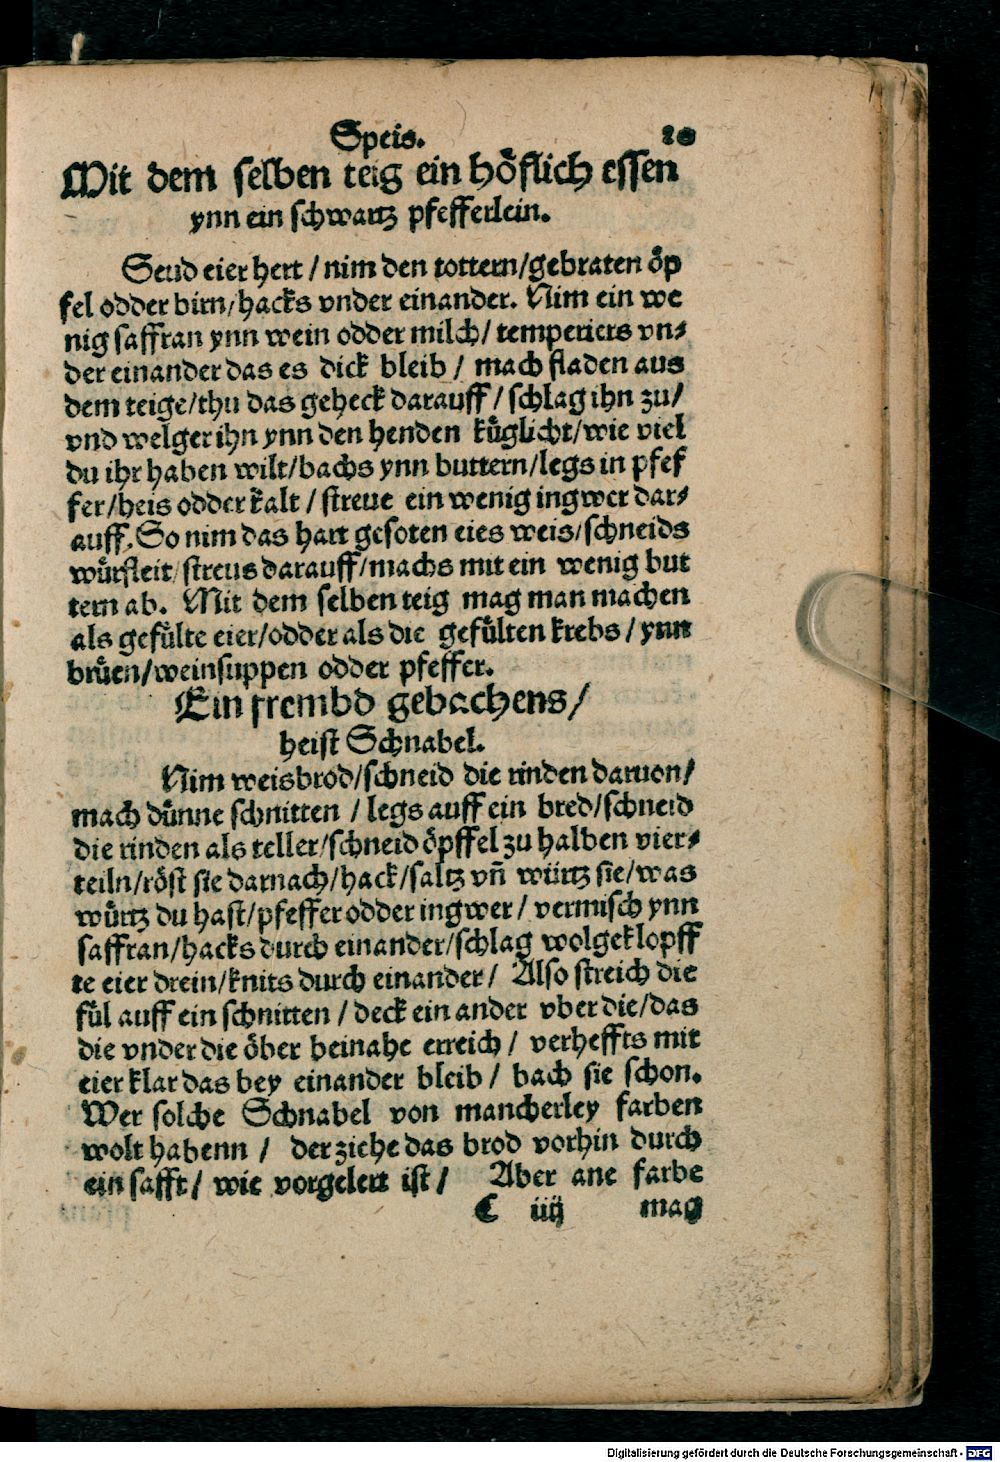 Speis. 20
Mit dem selben teig ein höflich essen
ynn ein schwartz pfefferlein.
Seud eier hert / nim den tottern/gebraten öp
fel odder birn/hacks vnder einander. Nim ein we
nig saffran ynn wein odder milch/ temperiers vn⸗
der einander das es dick bleib / mach fladen aus
dem teige/thu das geheck darauff / schlag ihn zu/
vnd welger ihn ynn den henden küglicht/wie viel
du ihr haben wilt/bachs ynn buttern/legs in pfef
fer/heis odder kalt / streue ein wenig ingwer dar⸗
auff. So nim das hart gesoten eies weis/schneids
würfleit/ streus darauff/machs mit ein wenig but
tern ab. Mit dem selben teig mag man machen
als gefülte eier/odder als die gefülten krebs / ynn
brüen/weinsuppen odder pfeffer.
Ein frembd gebachens/
heist Schnabel.
Nim weisbrod/schneid die rinden daruon/
mach dünne schnitten / legs auff ein bred/schneid
die rinden als teller/schneid öpffel zu halben vier⸗
teiln/röst sie darnach/hack/saltz vñ würtz sie/was
würtz du hast/pfeffer odder ingwer / vermisch ynn
saffran/hacks durch einander/schlag wolgeklopff
te eier drein/knits durch einander/ Also streich die
fül auff ein schnitten / deck ein ander vber die/das
die vnder die öber beinahe erreich / verheffts mit
eier klar das bey einander bleib / bach sie schon.
Wer solche Schnabel von mancherley farben
wolt habenn / der ziehe das brod vorhin durch
ein safft/ wie vorgelert ist / Aber ane farbe
C iiij mag
Digitalisierung gefördert durch die Deutsche Forschungsgemeinschaft - DFG